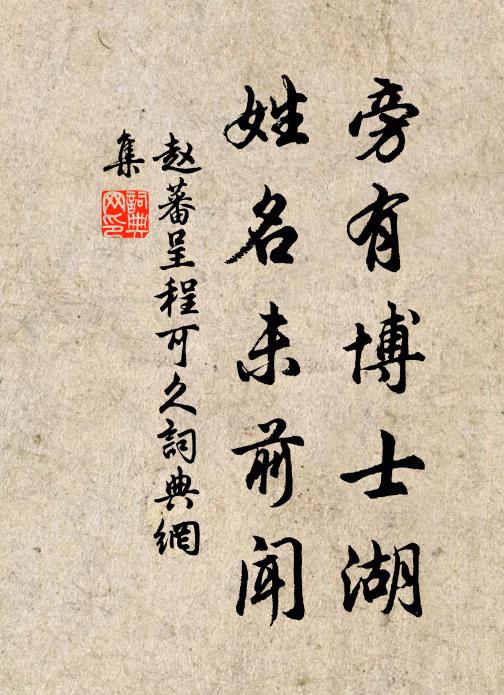 旁有博士湖
姓名未前闻
赵蕃呈程可久詞典網
集
詞典网印